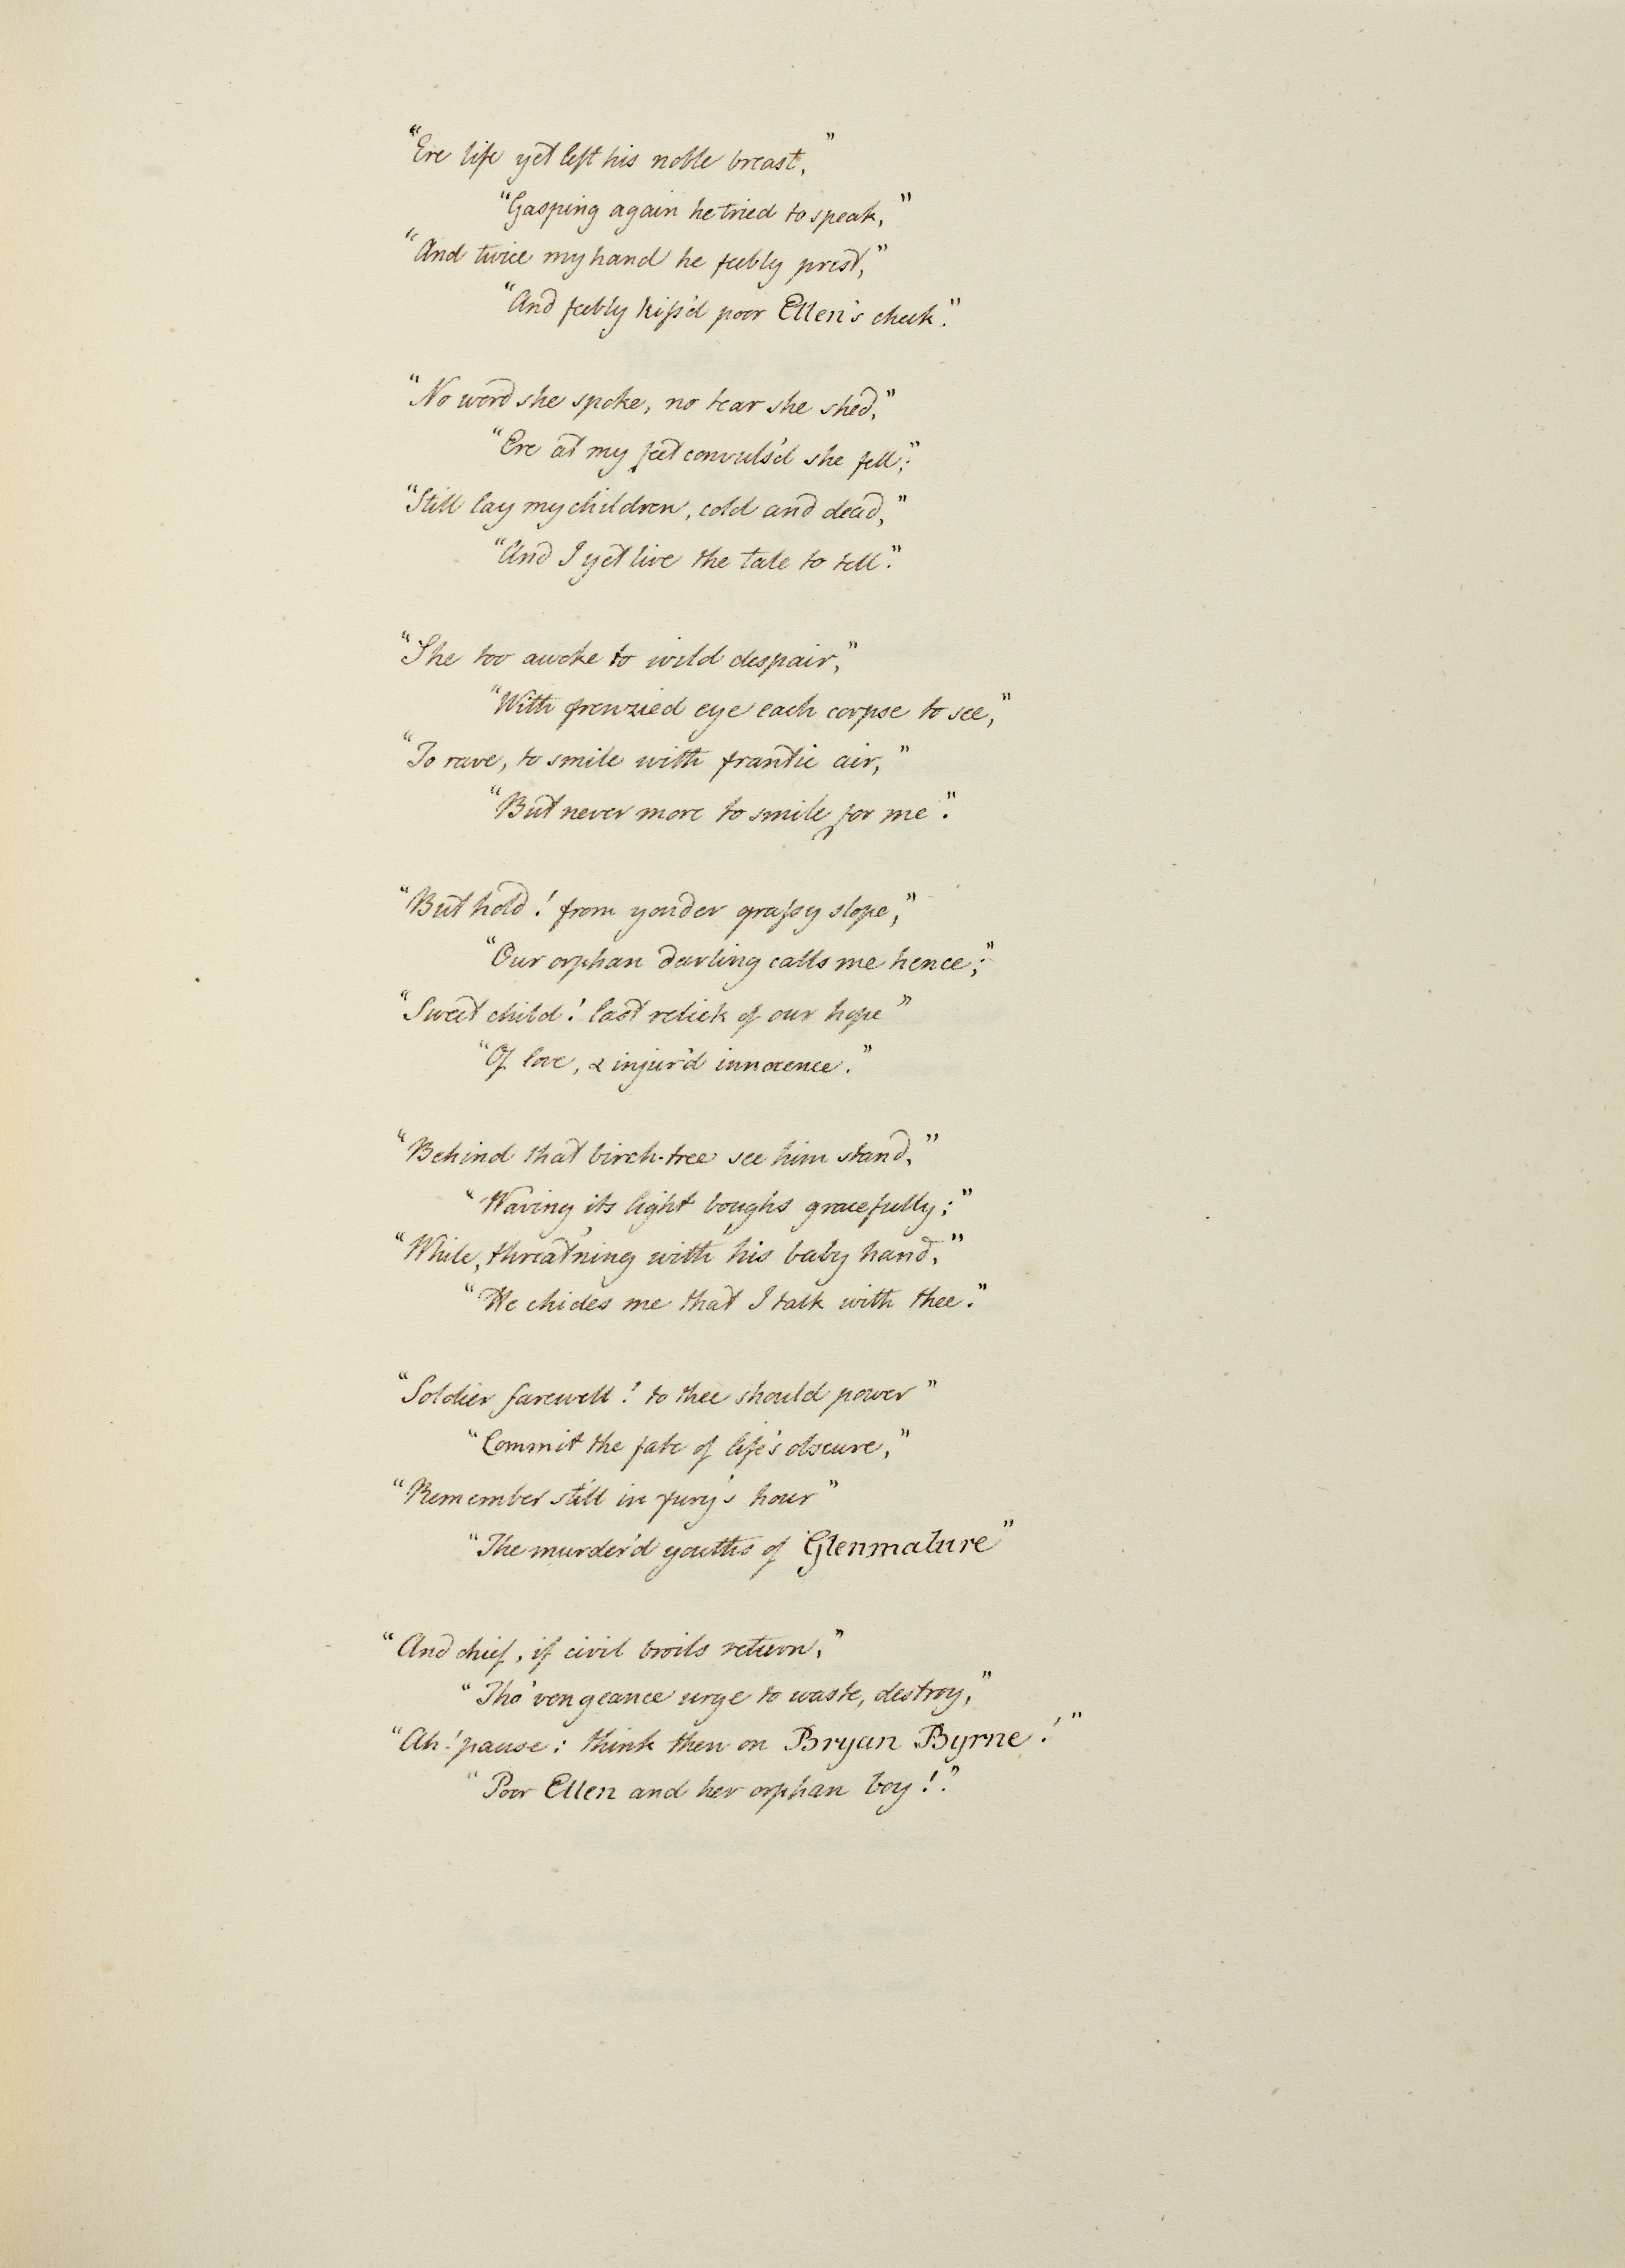 "Ere life yet left his noble breast,"
"Gasping again he tried to speak,"
"And twice my hand he feebly prest,"
"And feebly kiſs'd poor Ellen's cheek."
"No word she spoke, no tear she shed,"
"Ere at my feet convuls'd she fell;"
"Still lay my children, cold and dead,"
"And I yet live the tale to tell."
"She too awoke to wild despair,"
"With frenzied eye each corpse to see,"
"To rave, to smile with frantic air,"
"But never more to smile for me."
"But hold! from yonder graſsy slope,"
"Our orphan darling calls me hence;"
"Sweet child! last relick of our hope"
"Of love, & injur'd innocence."
"Behind that birch-tree see him stand,"
"Waving its light boughs gracefully;"
"While, threat'ning with his baby hand,"
"He chides me that I talk with thee."
"Soldier farewell! to thee should power"
"Commit the fate of life's obscure,"
"Remember still in fury's hour"
"The murder'd youths of Glenmalure"
"And chief, if civil broils return,"
"Tho' vengeance urge to waste, destroy,"
"Ah! pause: think then on Bryan Byrne!"
"Poor Ellen and her orphan boy!"